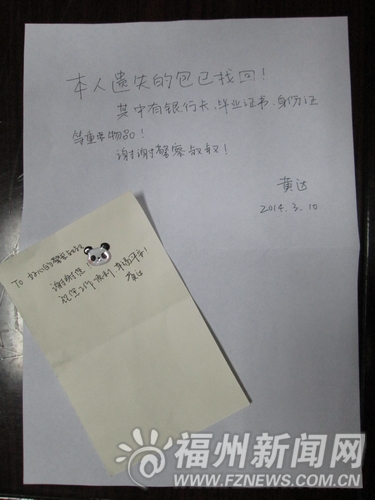 本人遗失的包已找回!
其中有银行卡、毕业证书、身份证
等重要物品!
谢谢警察叔叔!
黄达
2014.3.10
To 好心的警察叔叔
谢谢您!!
祝您工作顺利
黄达
福州新闻网
WWW.FZNEWS.COM.CN